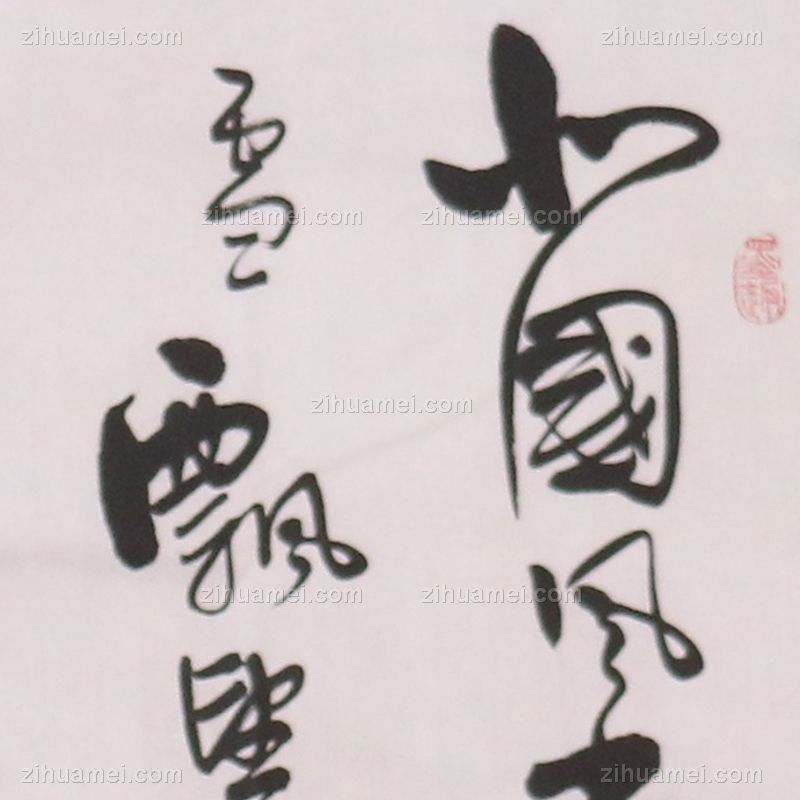 北國風光
雪飄望
zihuamei.com
zihuamei.com
zihuamei.com
zihuamei.com
zihuamei.com
zihuamei.com
zihuamei.com
zihuamei.com
zihuamei.com